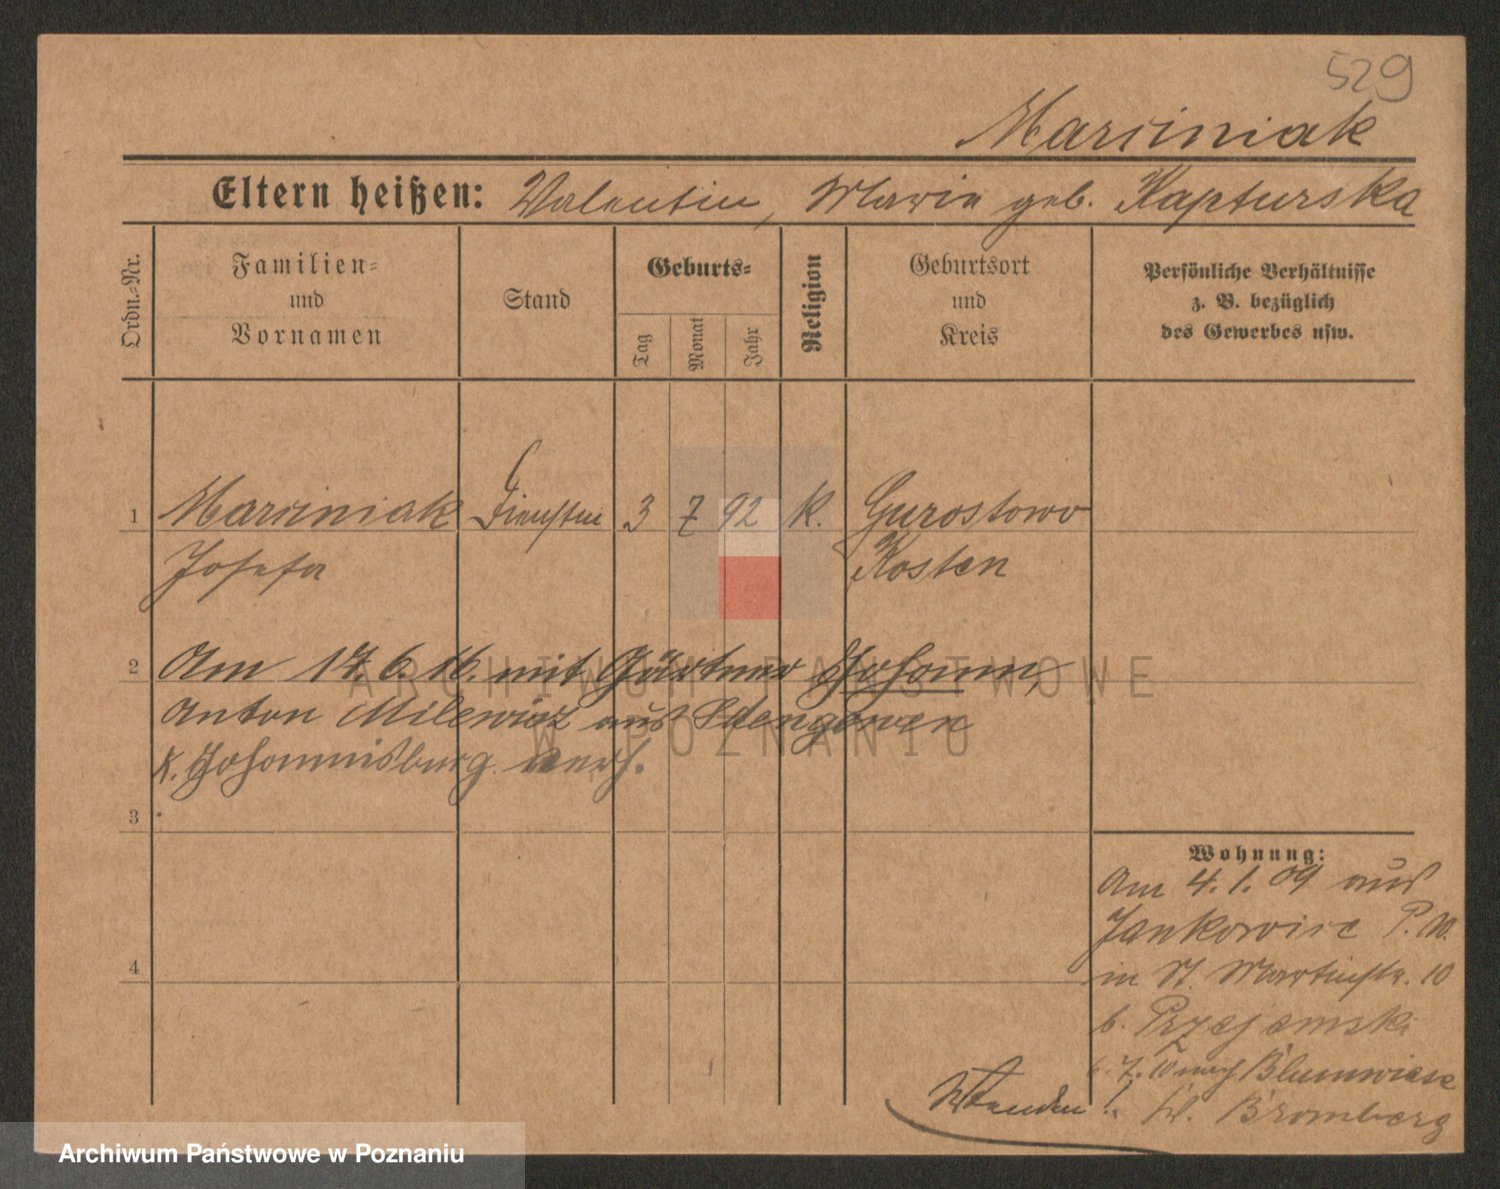 529
Marciniak
Eltern heißen: Valentin, Marie geb. Kapturska
Ordn.-Nr.
Familien-
und
Vornamen
Stand
Geburts-
Tag
Monat
Jahr
Religion
Geburtsort
und
Kreis
Persönliche Verhältnisse
z. B. bezüglich
des Gewerbes usw.
1 Marciniak 3 7 92 k. Gurostowo
Josefa Kosten
2 Am 17. 6. 16. mit Gärtner Johann,
Anton Milewicz aus
K. Johannisburg verh.
3
4
Wohnung:
Am 4. 1. 09 aus
Jankowice P. W.
in St. Martinstr. 10
b. Przejemski
7. 10 nach Blumwiese
Bromberg
Wenden!
ARCHIWUM PAŃSTWOWE
W POZNANIU
Archiwum Państwowe w Poznaniu